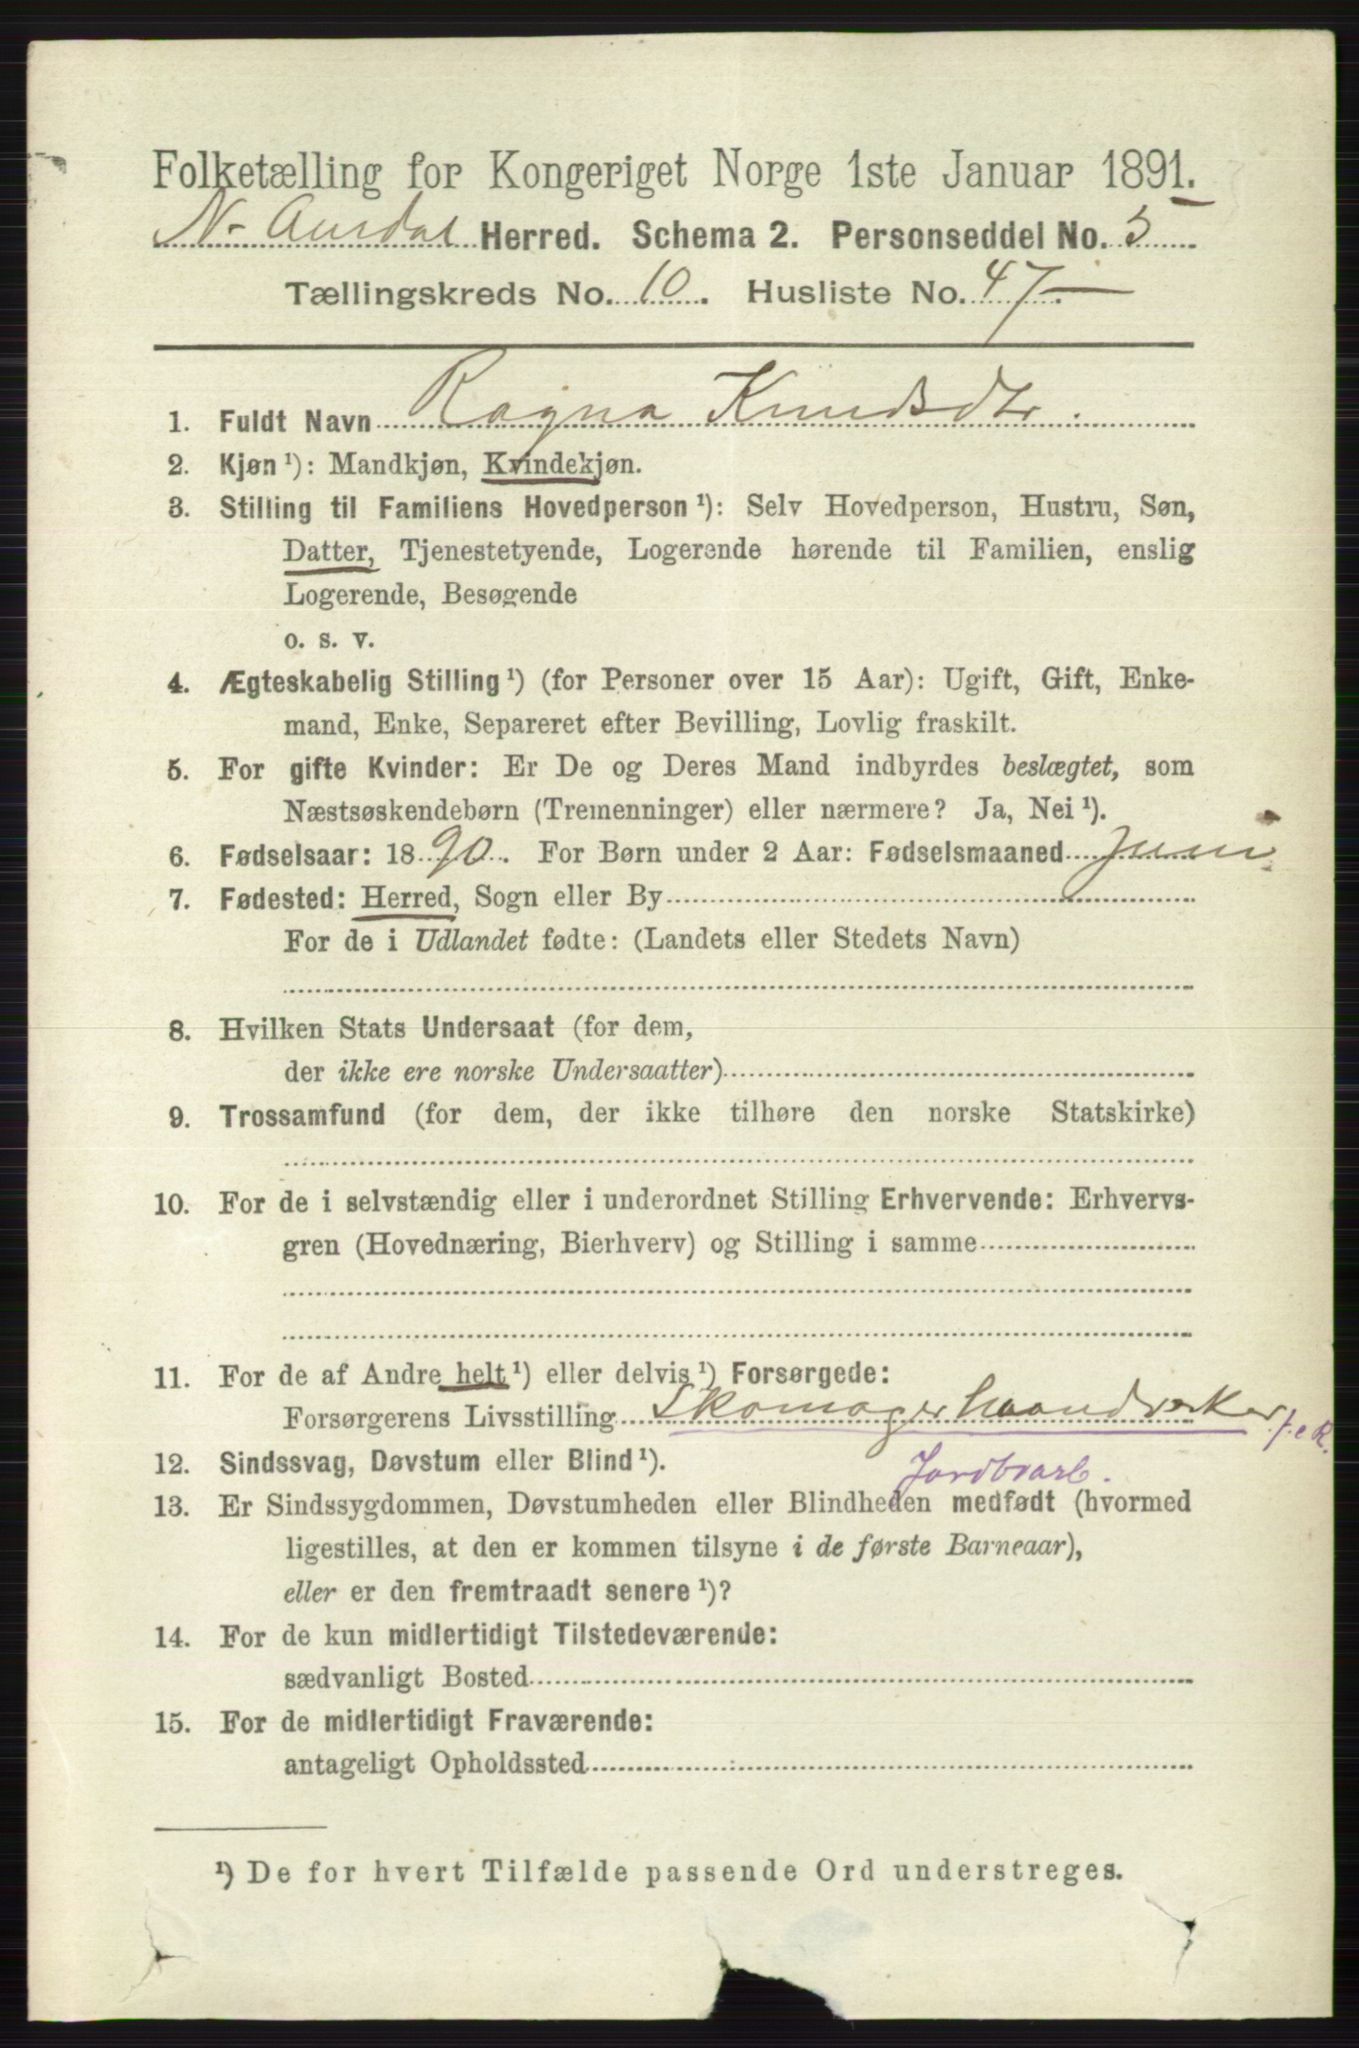 Folketælling for Kongeriget Norge 1ste Januar 1891.
N. Aurdal Herred. Schema 2. Personseddel No. 5
Tællingskreds No. 10. Husliste No. 47
1. Fuldt Navn Ragna Knudsdtr.
2. Kjøn ¹): Mandkjøn, Kvindekjøn.
3. Stilling til Familiens Hovedperson ¹): Selv Hovedperson, Hustru, Søn,
Datter, Tjenestetyende, Logerende hørende til Familien, enslig
Logerende, Besøgende
o. s. v.
4. Ægteskabelig Stilling ¹) (for Personer over 15 Aar): Ugift, Gift, Enke-
mand, Enke, Separeret efter Bevilling, Lovlig fraskilt.
5. For gifte Kvinder: Er De og Deres Mand indbyrdes beslægtet, som
Næstsøskendebørn (Tremenninger) eller nærmere? Ja, Nei ¹).
6. Fødselsaar: 1890. For Børn under 2 Aar: Fødselsmaaned Juni
7. Fødested: Herred, Sogn eller By
For de i Udlandet fødte: (Landets eller Stedets Navn)
8. Hvilken Stats Undersaat (for dem,
der ikke ere norske Undersaatter)
9. Trossamfund (for dem, der ikke tilhøre den norske Statskirke)
10. For de i selvstændig eller i underordnet Stilling Erhvervende: Erhvervs-
gren (Hovednæring, Bierhverv) og Stilling i samme
11. For de af Andre helt ¹) eller delvis ¹) Forsørgede:
Forsørgerens Livsstilling Skomagerhaandværker f.e.R.
12. Sindssvag, Døvstum eller Blind ¹). Jordbrarb.
13. Er Sindssygdommen, Døvstumheden eller Blindheden medfødt (hvormed
ligestilles, at den er kommen tilsyne i de første Barneaar),
eller er den fremtraadt senere ¹)?
14. For de kun midlertidigt Tilstedeværende:
sædvanligt Bosted
15. For de midlertidigt Fraværende:
antageligt Opholdssted
¹) De for hvert Tilfælde passende Ord understreges.